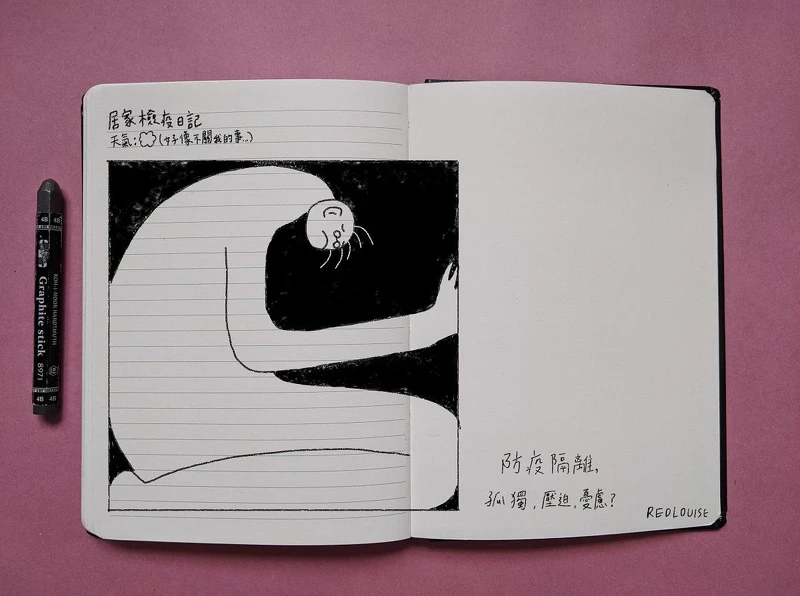 居家檢疫日記
天氣:(好像不關我的事...)
防疫隔離,
孤獨,壓迫,憂慮?
REDLOUISE
4B 4B
KOH-I-NOOR HARDTMUTH
Graphite stick 8971
4B 4B